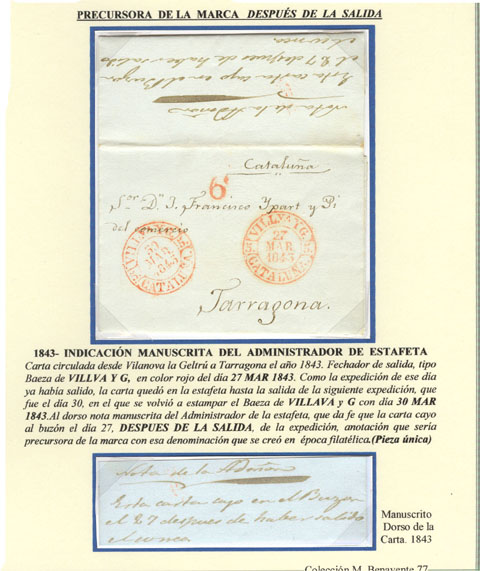 PRECURSORA DE LA MARCA DESPUÉS DE LA SALIDA
Nota de la Admon
Esta carta cayo en el Buzon
el 27 despues de haber salido
Cataluña
6
Sor. Dn. J. Francisco Ypart y Pi
del comercio
VILLVA Y G.
30
MAR
1843
CATALUÑA
VILLVA Y G.
27
MAR
1843
CATALUÑA
Tarragona.
1843- INDICACIÓN MANUSCRITA DEL ADMINISTRADOR DE ESTAFETA
Carta circulada desde Vilanova la Geltrú a Tarragona el año 1843. Fechador de salida, tipo
Baeza de VILLVA Y G, en color rojo del día 27 MAR 1843. Como la expedición de ese día
ya había salido, la carta quedó en la estafeta hasta la salida de la siguiente expedición, que
fue el día 30, en el que se volvió a estampar el Baeza de VILLAVA y G con día 30 MAR
1843.Al dorso nota manuscrita del Administrador de la estafeta, que da fe que la carta cayo
al buzón el día 27, DESPUES DE LA SALIDA, de la expedición, anotación que sería
precursora de la marca con esa denominación que se creó en época filatélica.(Pieza única)
Nota de la Admon
Esta carta cayo en el Buzon
el 27 despues de haber salido
Manuscrito
Dorso de la
Carta. 1843
Colección M. Benavente 77